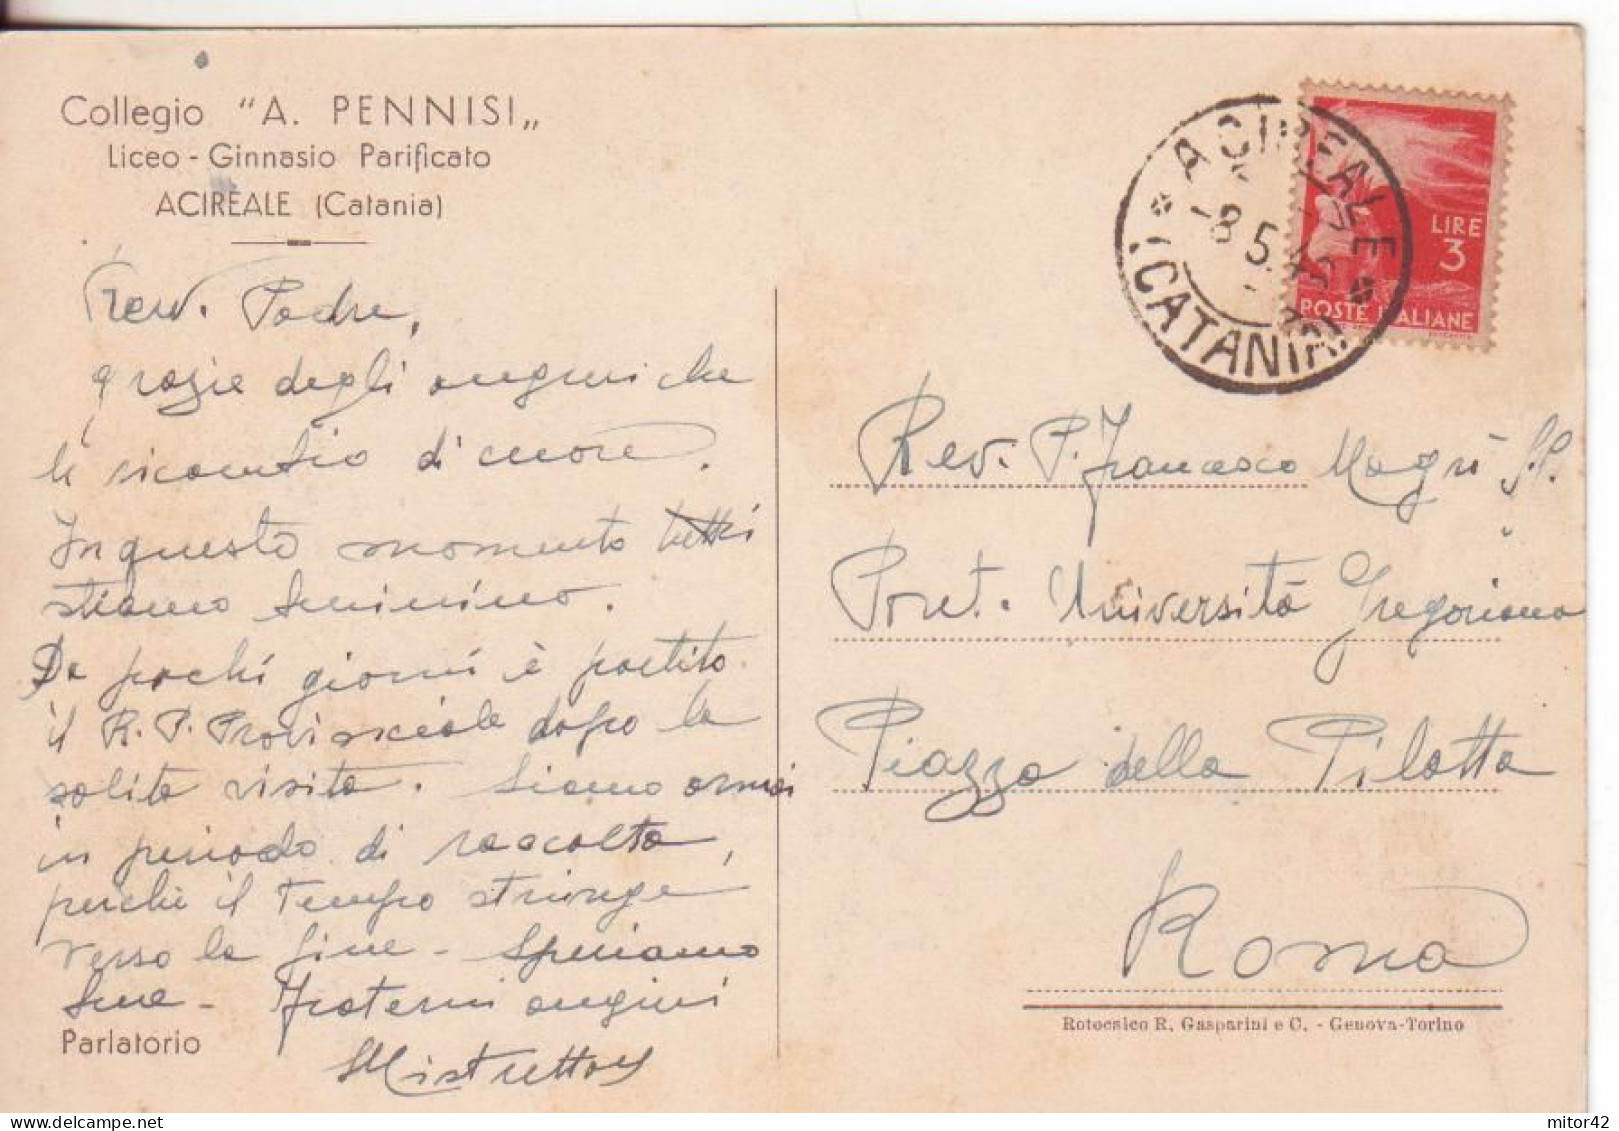 Collegio "A. PENNISI„
Liceo - Ginnasio Parificato
ACIREALE (Catania)
Rev. Padre,
grazie degli auguri che
le ricambio di cuore.
In questo momento tutti
stiamo benissimo.
Da pochi giorni è partito
il R. P. Provinciale dopo la
solita visita. Siamo ormai
in periodo di raccolta,
perchè il tempo stringe
verso la fine - Speriamo
bene - Fraterni auguri
Mistretta
Parlatorio
ACIREALE
(CATANIA)
-8.5.
LIRE
3
POSTE ITALIANE
Rev. P. Francesco Magrì S.J.
Pont. Università Gregoriana
Piazza della Pilotta
Roma
Rotocalco R. Gasparini e C. - Genova-Torino
delcampe.net
mitor42